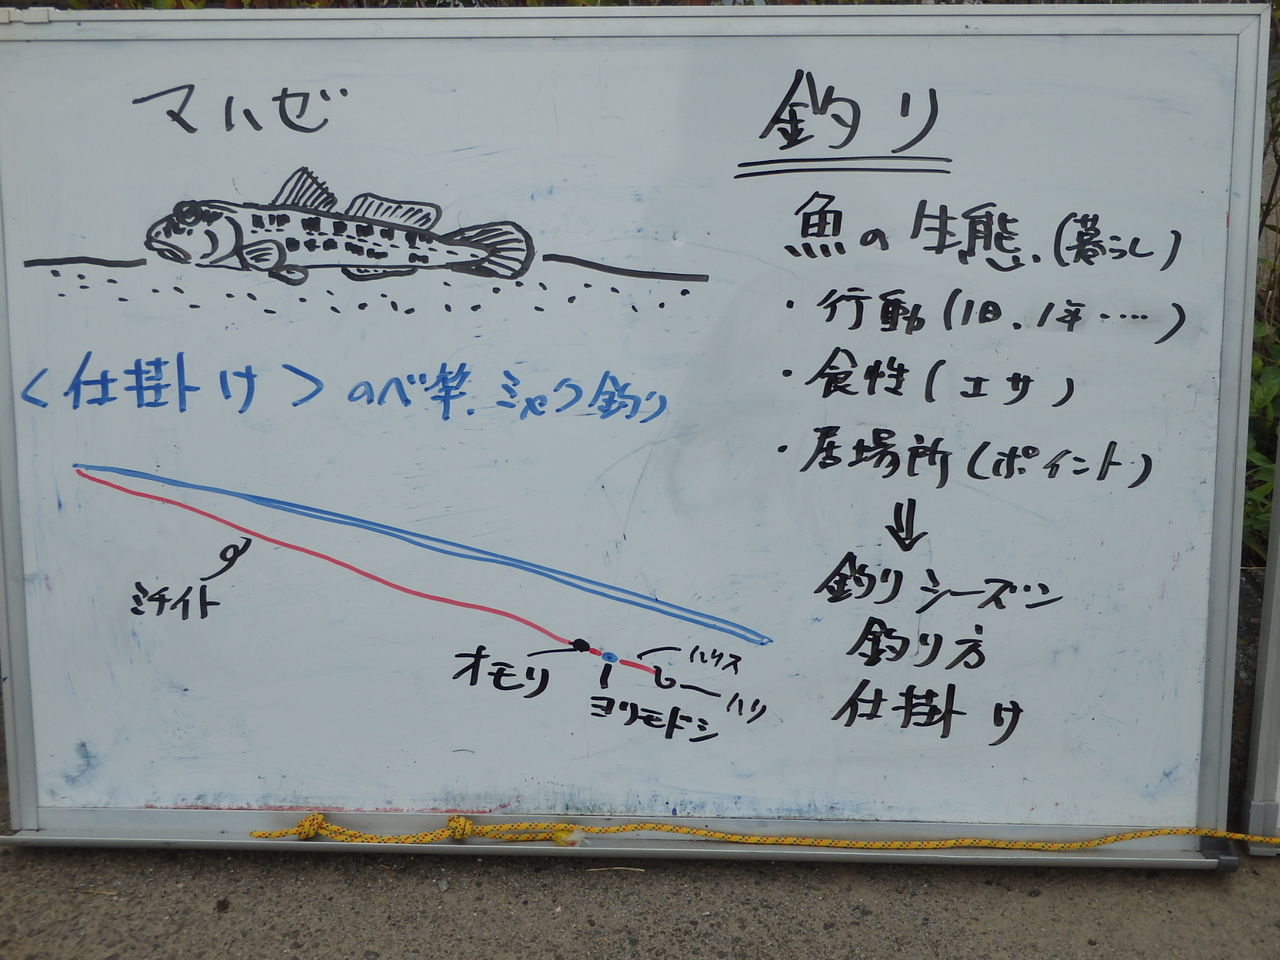 マハゼ
<仕掛け> のべ竿. ミャク釣り
ミチイト
オモリ
ヨリモドシ
ハリス
ハリ
釣り
魚の生態.(暮らし)
・行動(1日、1年・・・・)
・食性(エサ)
・居場所(ポイント)
⇓
釣りシーズン
釣り方
仕掛け